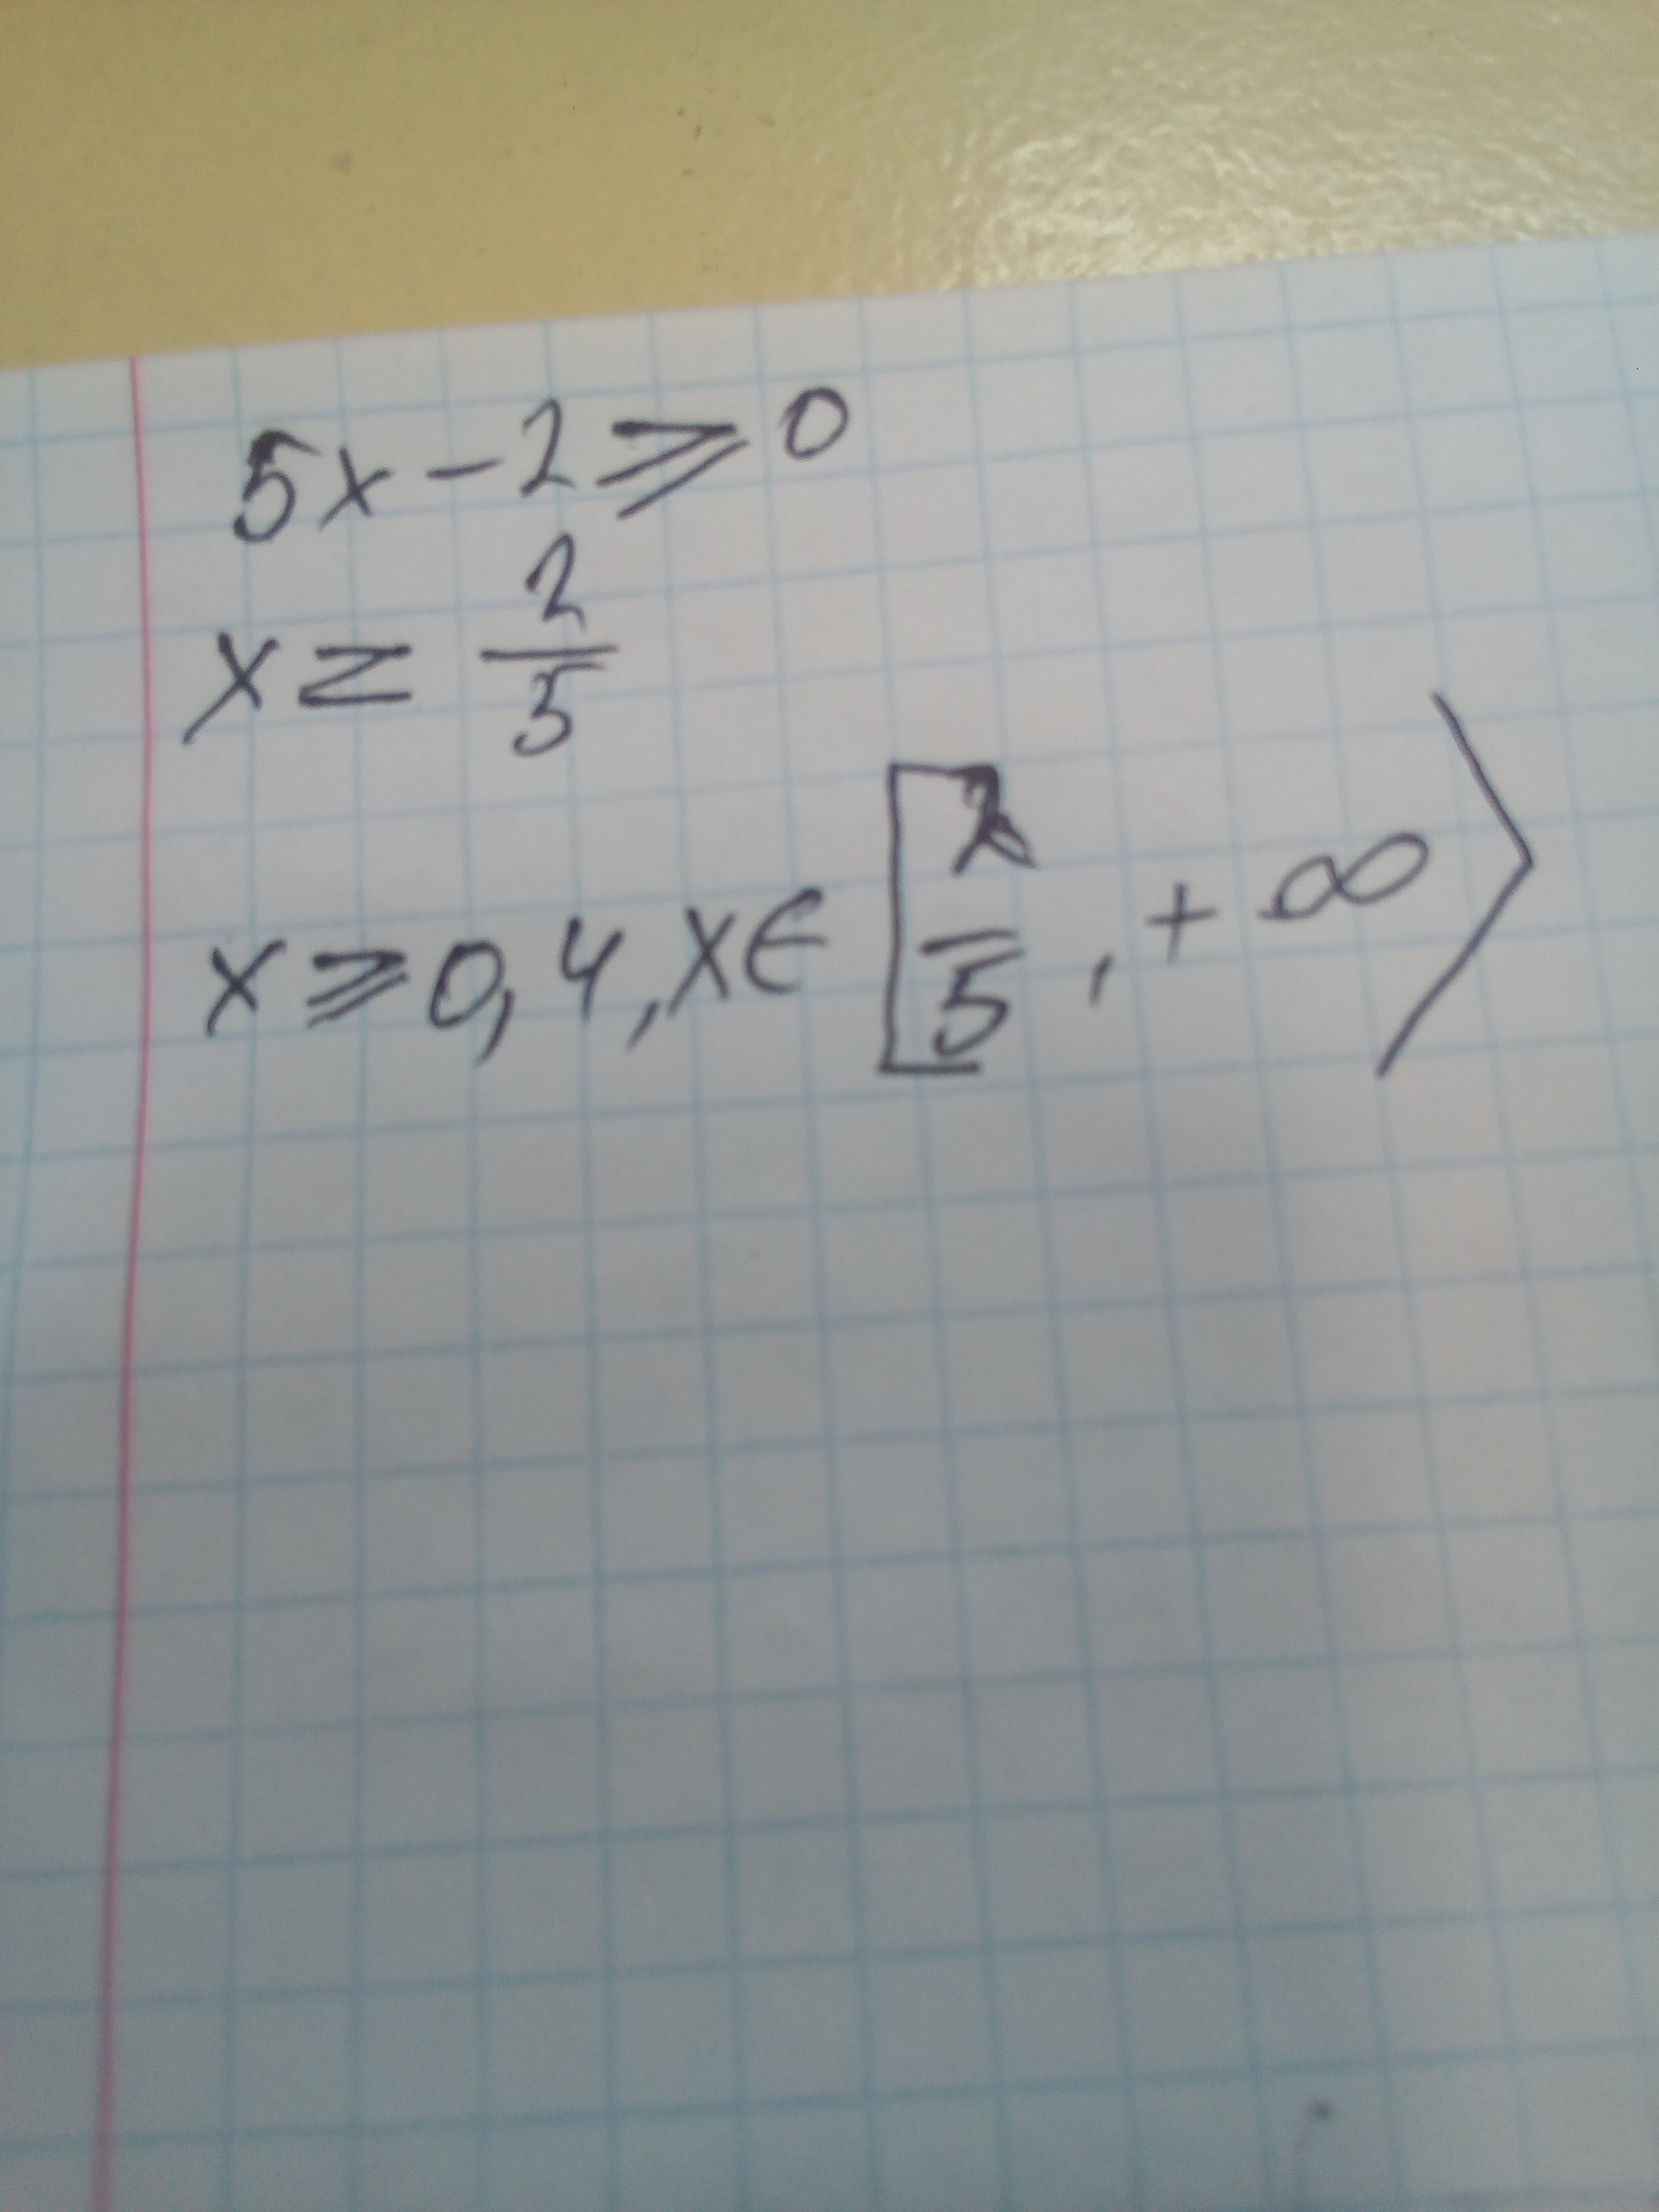 5x-2⩾0
x≥ 2/5
x⩾0,4, x∈[2/5, +∞⟩